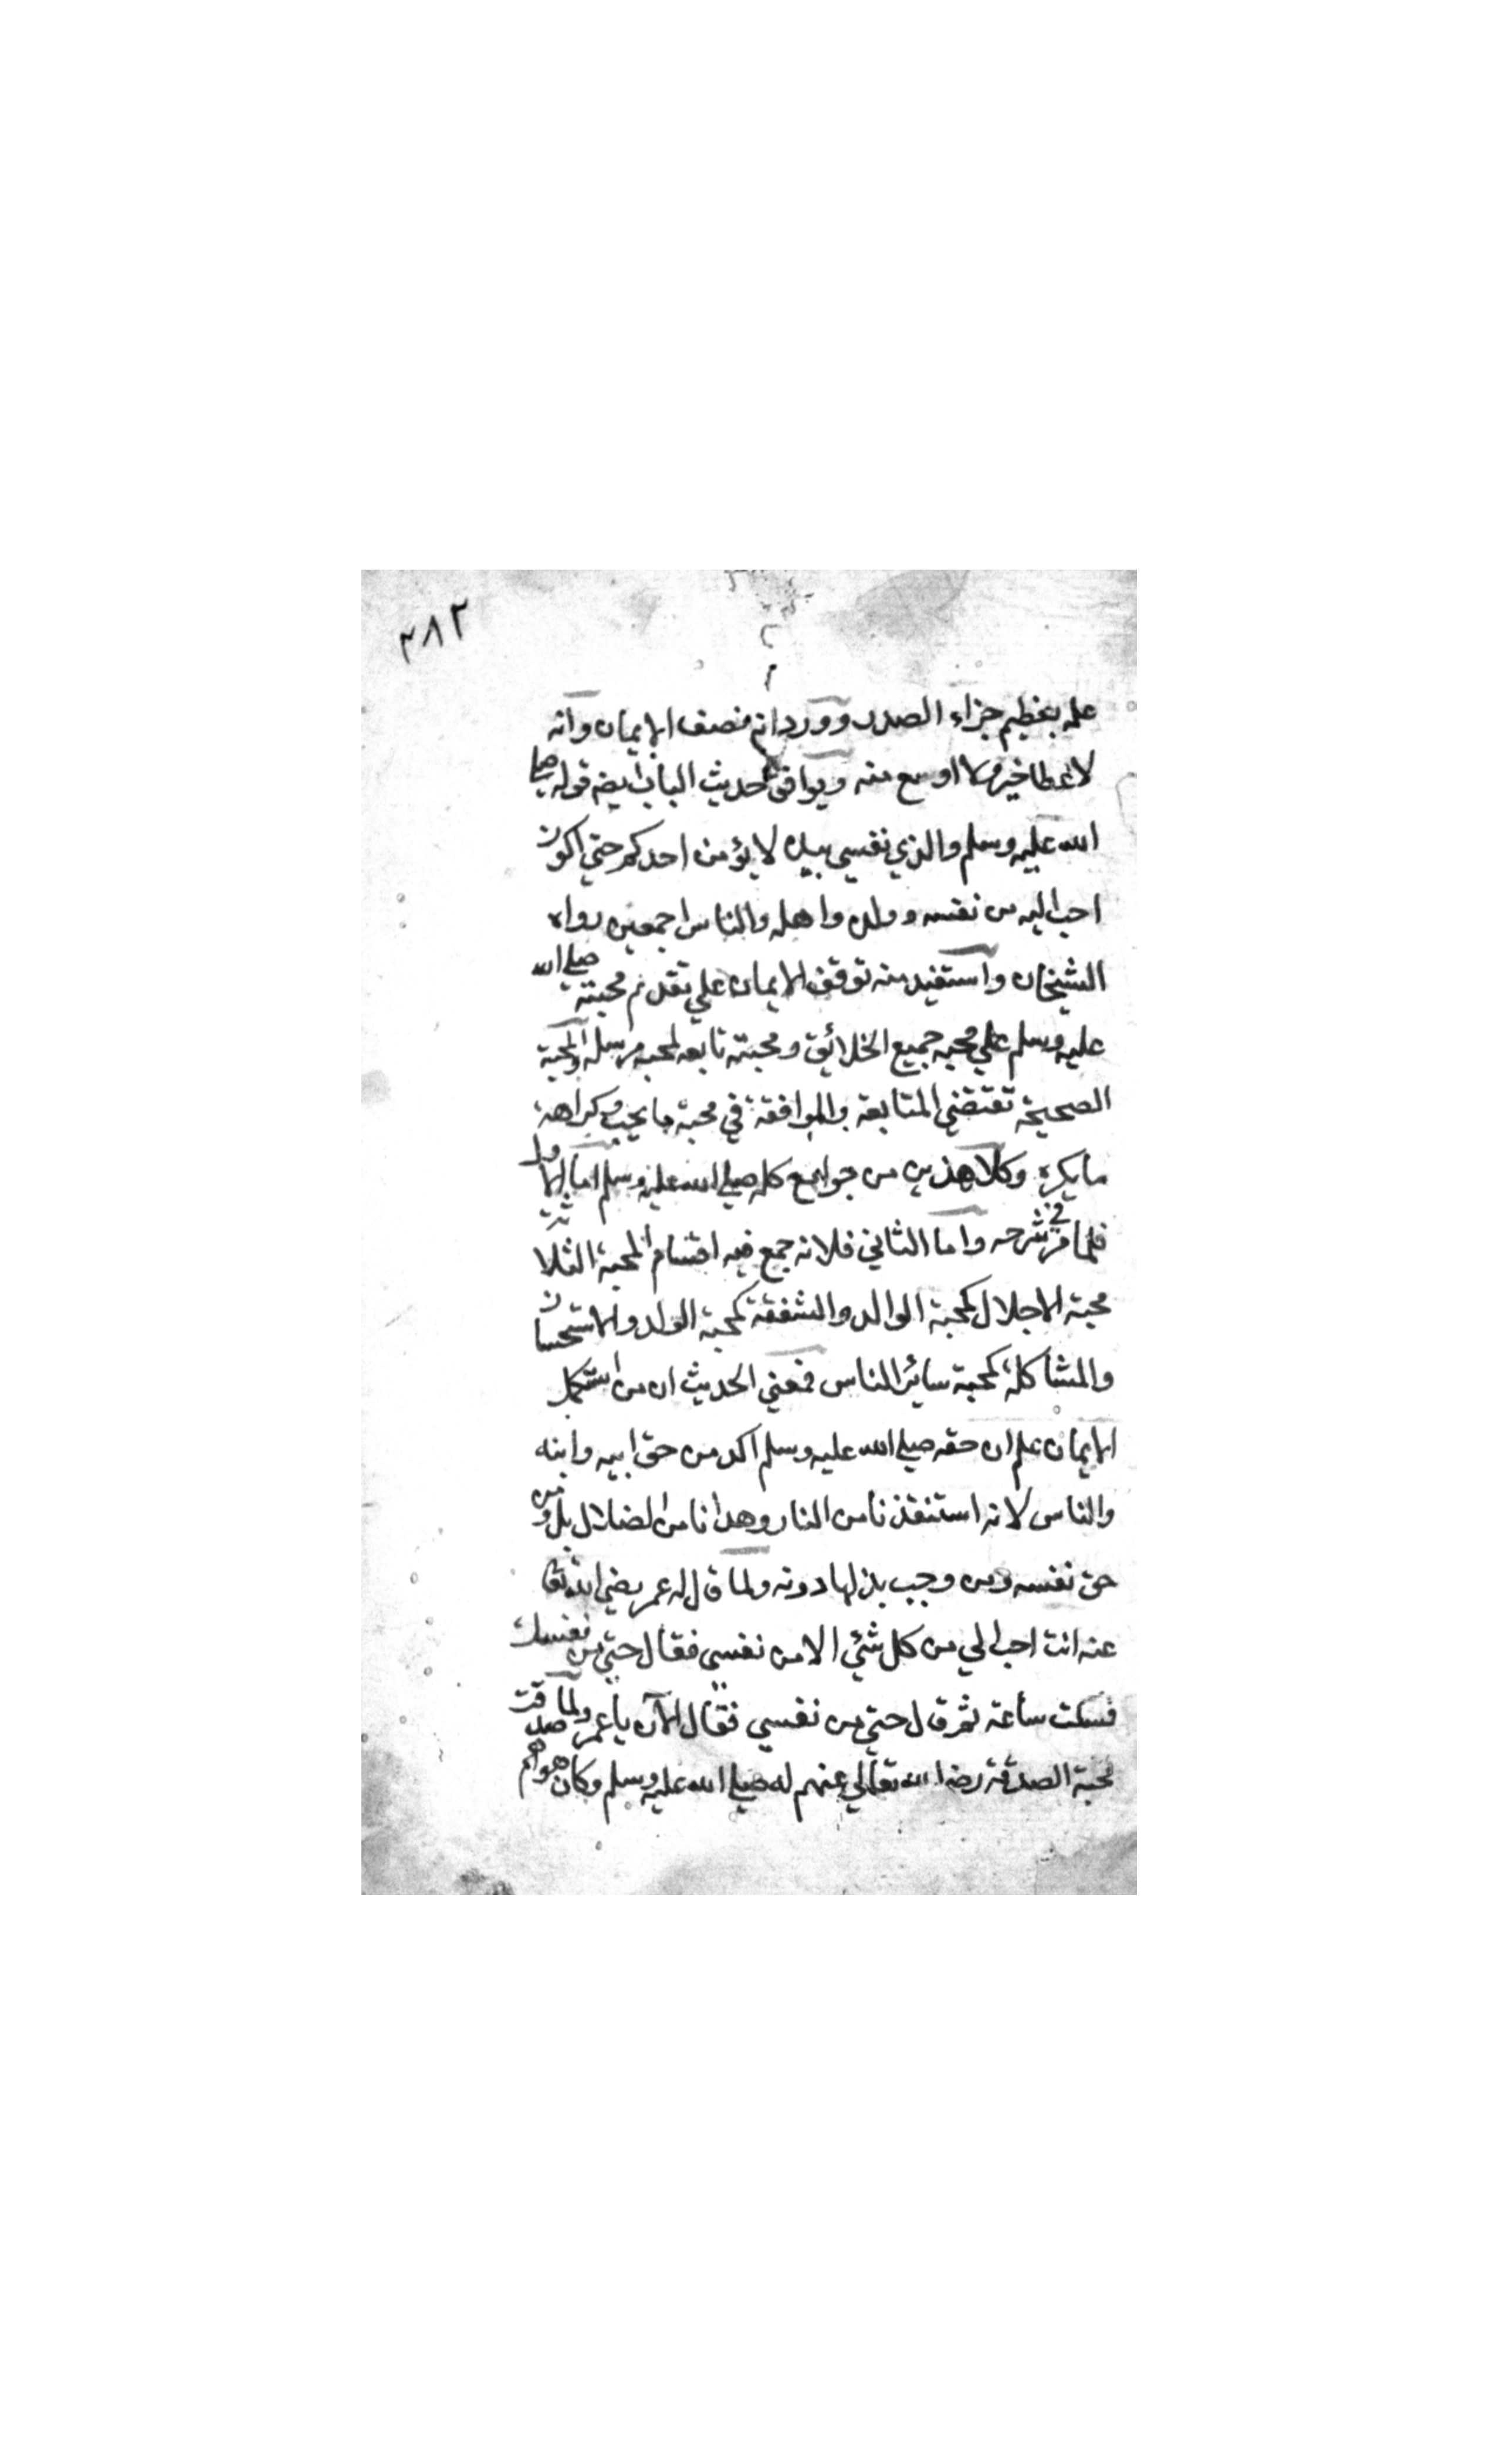 ٣٨٢
علمه بعظيم جزاء الصبر وورد انه نصف الايمان وانه
لا عطا خير ولا اوسع منه ويوافق حديث الباب ايضا قوله صلي
الله عليه وسلم والذي نفسي بيده لا يؤمن احدكم حتي اكون
احب اليه من نفسه وولده واهله والناس اجمعين رواه
الشيخان واستفيد منه توقف الايمان علي تقديم محبته صلي الله
عليه وسلم علي محبه جميع الخلائق ومحبته تابعه لمحبه مرسله والمحبة
الصحيحة تقتضي المتابعة والموافقة في محبة ما يحب وكراهة
ما يكره وكلا هذين من جوامع كلمه صلي الله عليه وسلم اما الاول
فلما مر في شرحه واما الثاني فلانه جمع فيه اقسام المحبة الثلاثة
محبة الاجلال كمحبة الوالد والشفقة كمحبة الولد والاستحسان
والمشاكلة كمحبة سائر الناس فمعني الحديث ان من استكمل
الايمان علم ان حقه صلي الله عليه وسلم اكد من حق ابيه وابنه
والناس لانه استنقذنا من النار وهدانا من الضلال بل ومن
حق نفسه ومن وجب بذلها دونه ولما قال له عمر رضي الله تعا
عنه انت احب الي من كل شئي الا من نفسي فقال حتي من نفسك
فسكت ساعة ثم قال حتي من نفسي فقال الآن يا عمر ولما صدقت
محبة الصحابة رضي الله تعالي عنهم له صلي الله عليه وسلم وكان هواهم